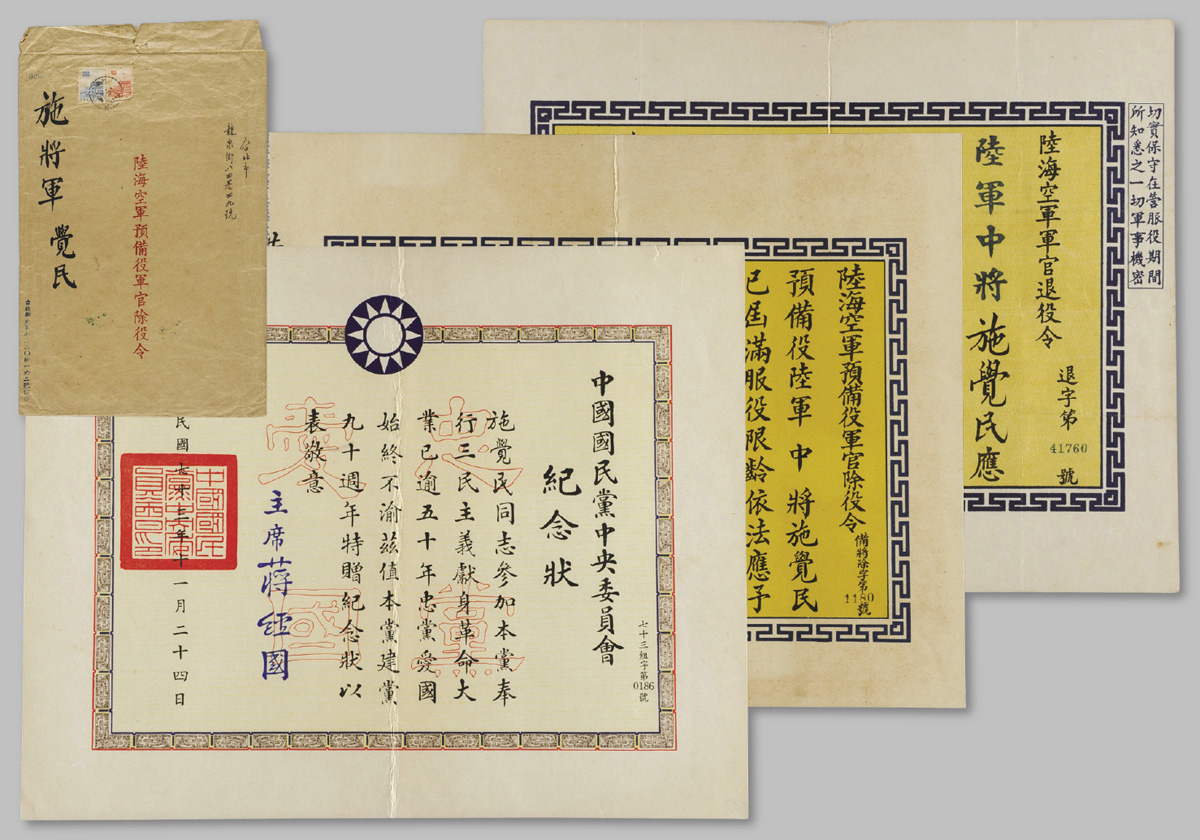 施將軍 覺民
陸海空軍預備役軍官除役令
台北市
龍泉街八四巷四九號
切實保守在營服役期間
所知悉之一切軍事機密
陸海空軍軍官退役令
退字第
41760
號
陸軍中將 施覺民應
陸海空軍預備役軍官除役令
備將除字第
1180
號
預備役陸軍 中 將施覺民
已屆滿服役限齡依法應予
中國國民黨中央委員會
紀念狀
七十三組字第
0186
號
施覺民同志參加本黨奉
行三民主義獻身革命大
業已逾五十年忠黨愛國
始終不渝茲值本黨建黨
九十週年特贈紀念狀以
表敬意
忠黨
愛國
主席 蔣經國
十一月二十四日